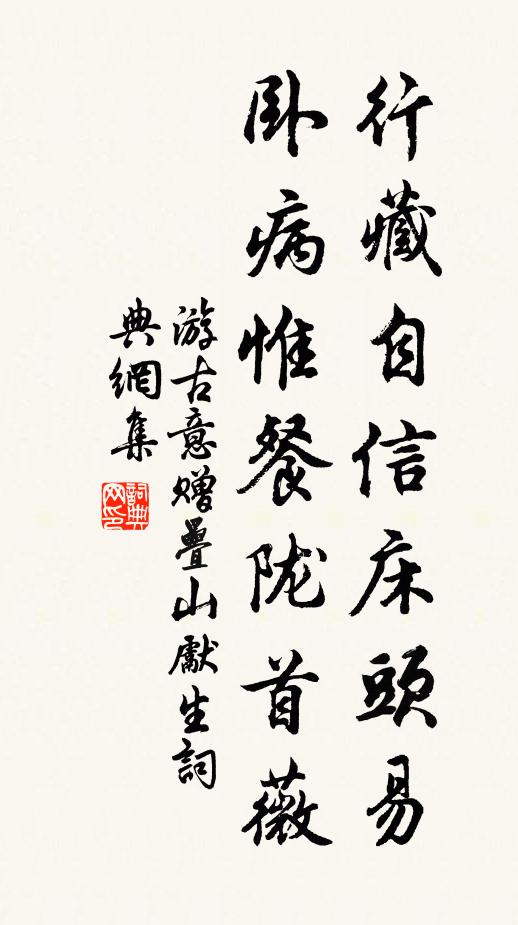 行藏自信床頭易
卧病惟餐陇首薇
游古意贈疊山獻生詞
典網集
詞典
网印